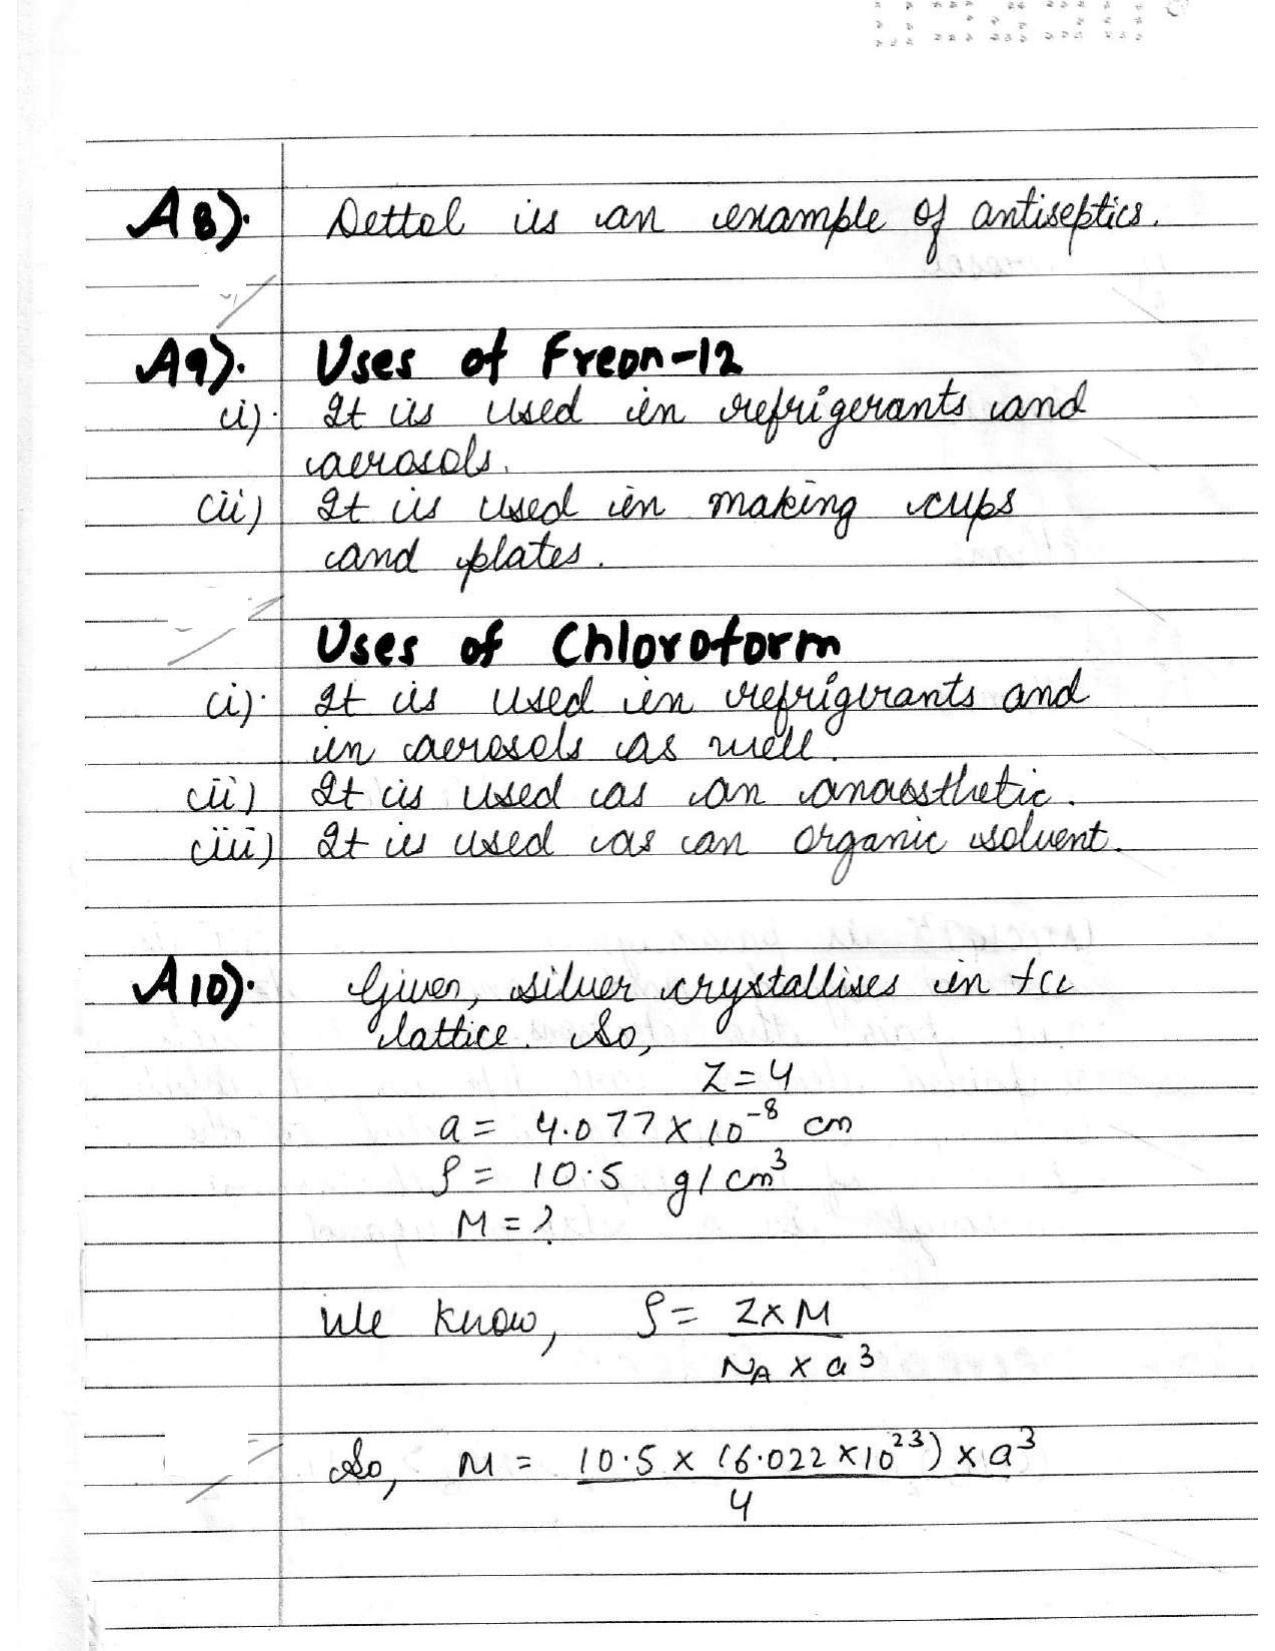 A8). Dettol is an example of antiseptics.
A9). Uses of Freon-12
i). It is used in refrigerants and
aerosols.
(ii) It is used in making cups
and plates.
Uses of Chloroform
(i). It is used in refrigerants and
in aerosols as well.
(ii) It is used as an anaesthetic.
(iii) It is used as an organic solvent.
A10). Given, silver crystallises in fcc
lattice. So,
Z = 4
a = 4.077 × 10⁻⁸ cm
ρ = 10.5 g/cm³
M = ?
We know, ρ = Z×M
N_A × a³
So, M = 10.5 × (6.022 × 10²³) × a³
4